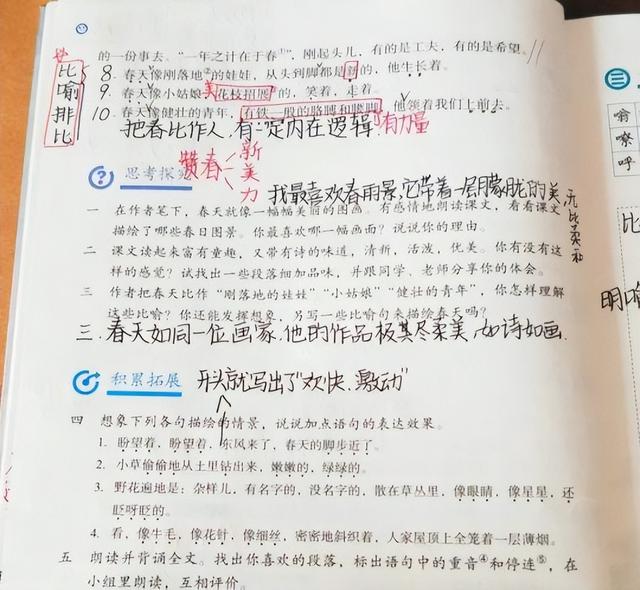 的一份事去。“一年之计在于春①”，刚起头儿，有的是工夫，有的是希望。
比喻排比
8. 春天像刚落地②的娃娃，从头到脚都是新的，他生长着。
9. 春天像小姑娘，花枝招展③的，笑着，走着。
美
10. 春天像健壮的青年，有铁一般的胳膊和腰脚，他领着我们上前去。
把春比作人，有一定内在逻辑
有力量
赞春
新
美
力
思考探究
我最喜欢春雨景，它带着一层朦胧的美，
无比柔和
一 在作者笔下，春天就像一幅幅美丽的图画。有感情地朗读课文，看看课文
描绘了哪些春日图景。你最喜欢哪一幅画面？说说你的理由。
二 课文读起来富有童趣，又带有诗的味道，清新，活泼，优美。你有没有这
样的感觉？试找出一些段落细加品味，并跟同学、老师分享你的体会。
三 作者把春天比作“刚落地的娃娃”“小姑娘”“健壮的青年”，你怎样理解
这些比喻？你还能发挥想象，另写一些比喻句来描绘春天吗？
三.春天如同一位画家，他的作品极其尽柔美，如诗如画.
积累拓展
开头就写出了“欢快、激动”
四 想象下列各句描绘的情景，说说加点语句的表达效果。
1. 盼望着，盼望着，东风来了，春天的脚步近了。
2. 小草偷偷地从土里钻出来，嫩嫩的，绿绿的。
3. 野花遍地是：杂样儿，有名字的，没名字的，散在草丛里，像眼睛，像星星，还
眨呀眨的。
4. 看，像牛毛，像花针，像细丝，密密地斜织着，人家屋顶上全笼着一层薄烟。
五 朗读并背诵全文。找出你喜欢的段落，标出语句中的重音④和停连⑤，在
小组里朗读，互相评价。
三
嘹
呼
比
明喻